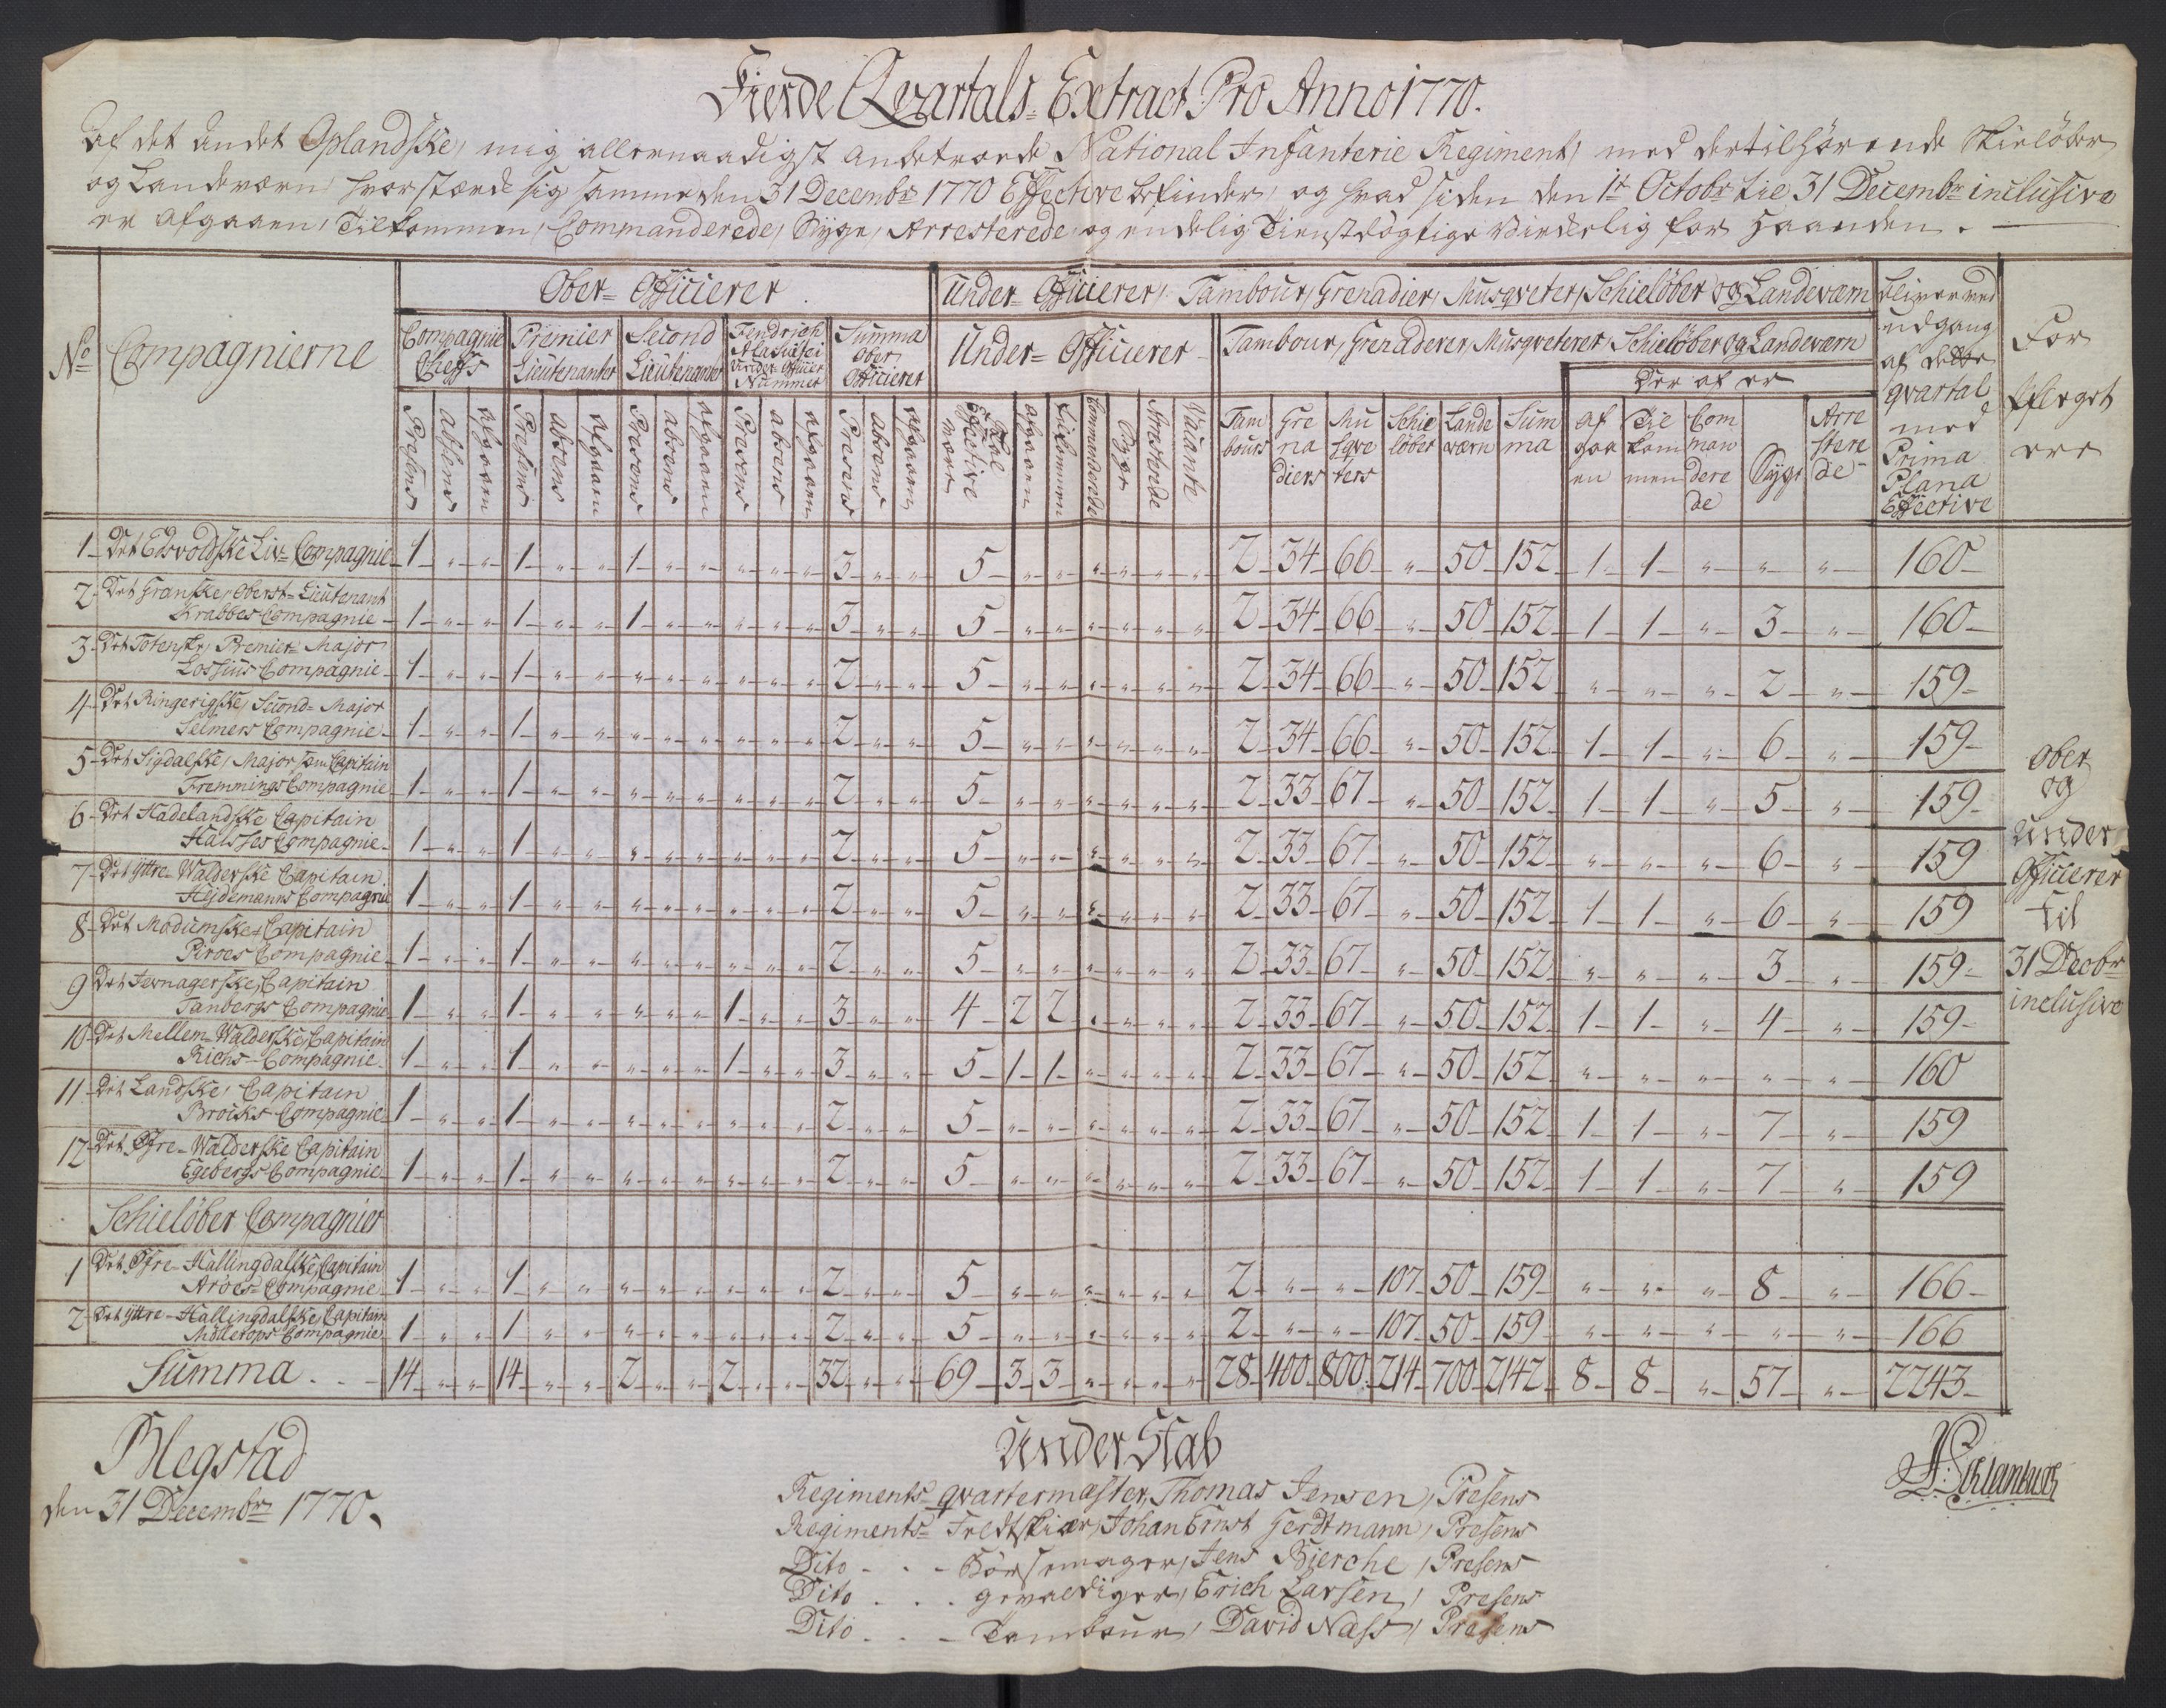 Fierde Qvartals-Extract Pro Anno 1770.
Af det Andet Oplandske, mig allernaadigst anbetroede National Infanterie Regiment, med dertilhørende Skieløber
og Landeværn, hvorstærk sig samme den 31 Decembr 1770 Effective befinder, og hvad siden den 1te Octobr til 31 Decembr inclusive
er afgaaen, Tilkommen, Commanderede, Syge, Arresterede, og endelig Tienstdögtige virkelig for Haanden.
No Compagnierne
Ober-Officierer
Under-Officierer, Tambour, Grenadier, Musqveter, Schielöber og Landeværn
Compagnie Cheffs
Premier Lieutenanter
Second Lieutenanter
Fendrich Under-Officier Nummer
Summa Ober Officierer
Under-Officierer
Tambour, Grenaderer, Musqveterer, Schielöber og Landeværn
Der af er
Bliver ved udgang af dette qvartal med Prima Plana Effective
For Pfleget ere
Presens Absens Afgaaen Presens Absens Afgaaen Presens Absens Afgaaen Presens Absens Afgaaen Presens Absens Afgaaen
Effective afgaaen Tilkommen Commanderede Syge Arresterede Vacante
Tambours Grenadiers Musqveters Schielöber Landeværn Summa
afgaaen Tilkommen Commanderede Syge Arresterede
1 Det Edsvoldske Liv-Compagnie 1 " " 1 " " 1 " " " " " 3 " " 5 " " " " " " 2 34 66 " 50 152 1 1 " " " 160
2 Det Granske, Oberst-Lieutenant
Krabbes Compagnie 1 " " 1 " " 1 " " " " " 3 " " 5 " " " " " " 2 34 66 " 50 152 1 1 " 3 " 160
3 Det Totenske, Premier Major
Lossius Compagnie 1 " " 1 " " " " " " " " 2 " " 5 " " " " " " 2 34 66 " 50 152 " " " 2 " 159
4 Det Ringerigske, Second-Major
Selmers Compagnie 1 " " 1 " " " " " " " " 2 " " 5 " " " " " " 2 34 66 " 50 152 1 1 " 6 " 159
5 Det Sigdalske, Major som Capitain
Fremmings Compagnie 1 " " 1 " " " " " " " " 2 " " 5 " " " " " " 2 33 67 " 50 152 1 1 " 5 " 159
6 Det Hadelandske Capitain
Halsses Compagnie 1 " " 1 " " " " " " " " 2 " " 5 " " " " " " 2 33 67 " 50 152 " " " 6 " 159
7 Det Yttre-Walderske Capitain
Hejdemanns Compagnie 1 " " 1 " " " " " " " " 2 " " 5 " " " " " " 2 33 67 " 50 152 1 1 " 6 " 159
8 Det Modumske Capitain
Piroes Compagnie 1 " " 1 " " " " " " " " 2 " " 5 " " " " " " 2 33 67 " 50 152 " " " 3 " 159
9 Det Jevnagerske, Capitain
Tanbergs Compagnie 1 " " 1 " " " " " 1 " " 3 " " 4 2 2 " " " " 2 33 67 " 50 152 1 1 " 4 " 159
10 Det Mellem-Walderske, Capitain
Richs Compagnie 1 " " 1 " " " " " 1 " " 3 " " 5 1 1 " " " " 2 33 67 " 50 152 " " " " " 160
11 Det Landske, Capitain
Brocks Compagnie 1 " " 1 " " " " " " " " 2 " " 5 " " " " " " 2 33 67 " 50 152 1 1 " 7 " 159
12 Det Öfre-Walderske Capitain
Egebergs Compagnie 1 " " 1 " " " " " " " " 2 " " 5 " " " " " " 2 33 67 " 50 152 1 1 " 7 " 159
Ober
og
Under
Officierer
til
31 Decbr
inclusive
Schielöber Compagnier
1 Det Öfre-Hallingdalske, Capitain
Aröes Compagnie 1 " " 1 " " " " " " " " 2 " " 5 " " " " " " 2 " " 107 50 159 " " " 8 " 166
2 Det Yttre-Hallingdalske, Capitain
Möllerops Compagnie 1 " " 1 " " " " " " " " 2 " " 5 " " " " " " 2 " " 107 50 159 " " " " " 166
Summa 14 " " 14 " " 2 " " 2 " " 32 " " 69 3 3 " " " " 28 400 800 214 700 2142 8 8 " 57 " 2243
Blegstad
den 31 Decembr 1770.
Under Stab
Regiments-qvartermester, Thomas Jensen, Presens
Regiments-Feldtskier, Johan Ernst Gerdtmann, Presens
Dito - Bösemager, Jens Bierche, Presens
Dito - gevaldiger, Erich Larsen, Presens
Dito - Tambour, David Nass, Presens